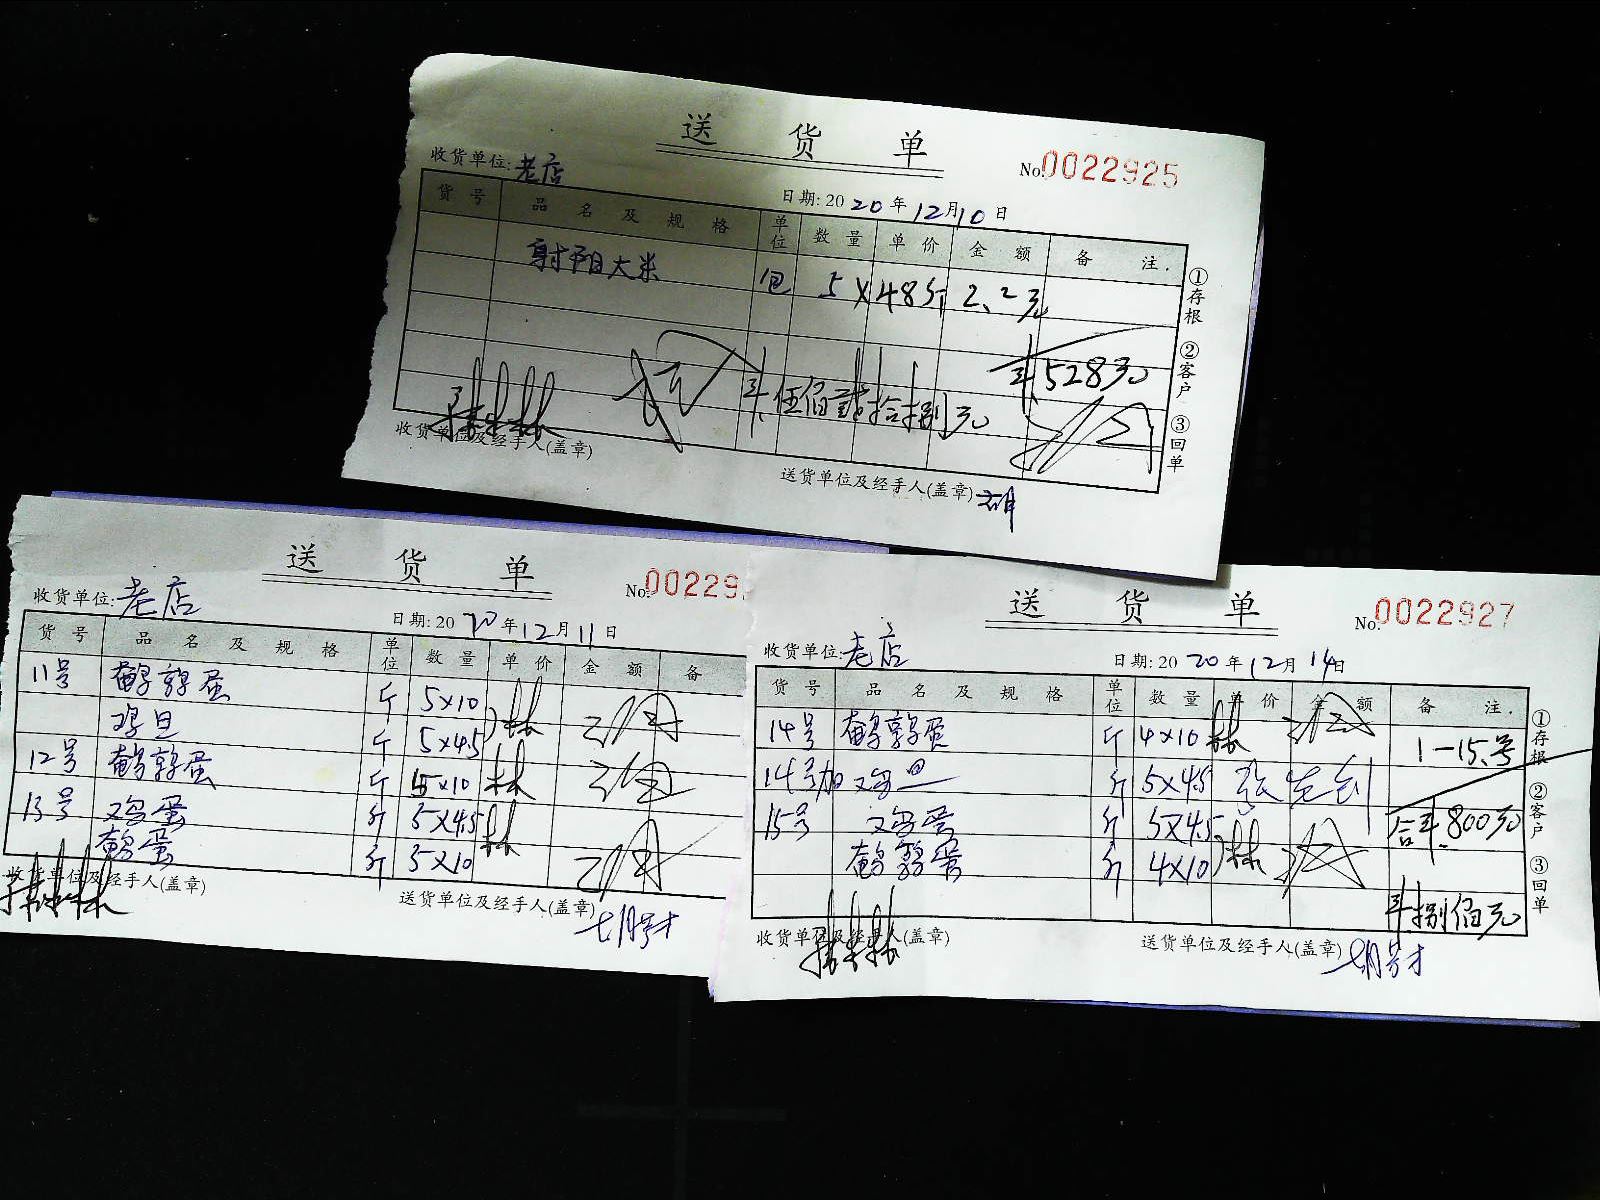 送 货 单
No.0022925
收货单位:老店
日期:2020年12月10日
货号 品名及规格 单位 数量 单价 金额 备注.
射阳大米 包 5×48斤 2.2元
¥528元
¥.伍佰贰拾捌元
收货单位及经手人(盖章)
送货单位及经手人(盖章)
①存根 ②客户 ③回单
送 货 单
No.00229
收货单位:老店
日期:2020年12月11日
货号 品名及规格 单位 数量 单价 金额 备
11号 鹌鹑蛋 斤 5×10
鸡旦 斤 5×4.5
12号 鹌鹑蛋 斤 5×10
13号 鸡蛋 斤 5×4.5
鹌蛋 斤 5×10
收货单位及经手人(盖章)
送货单位及经手人(盖章)
送 货 单
No.0022927
收货单位:老店
日期:2020年12月14日
货号 品名及规格 单位 数量 单价 金额 备注.
14号 鹌鹑蛋 斤 4×10 1-15号
14号加 鸡旦 斤 5×4.5
15号 鸡蛋 斤 5×4.5 合¥.800元
鹌鹑蛋 斤 4×10
¥捌佰元
收货单位及经手人(盖章)
送货单位及经手人(盖章)
①存根 ②客户 ③回单